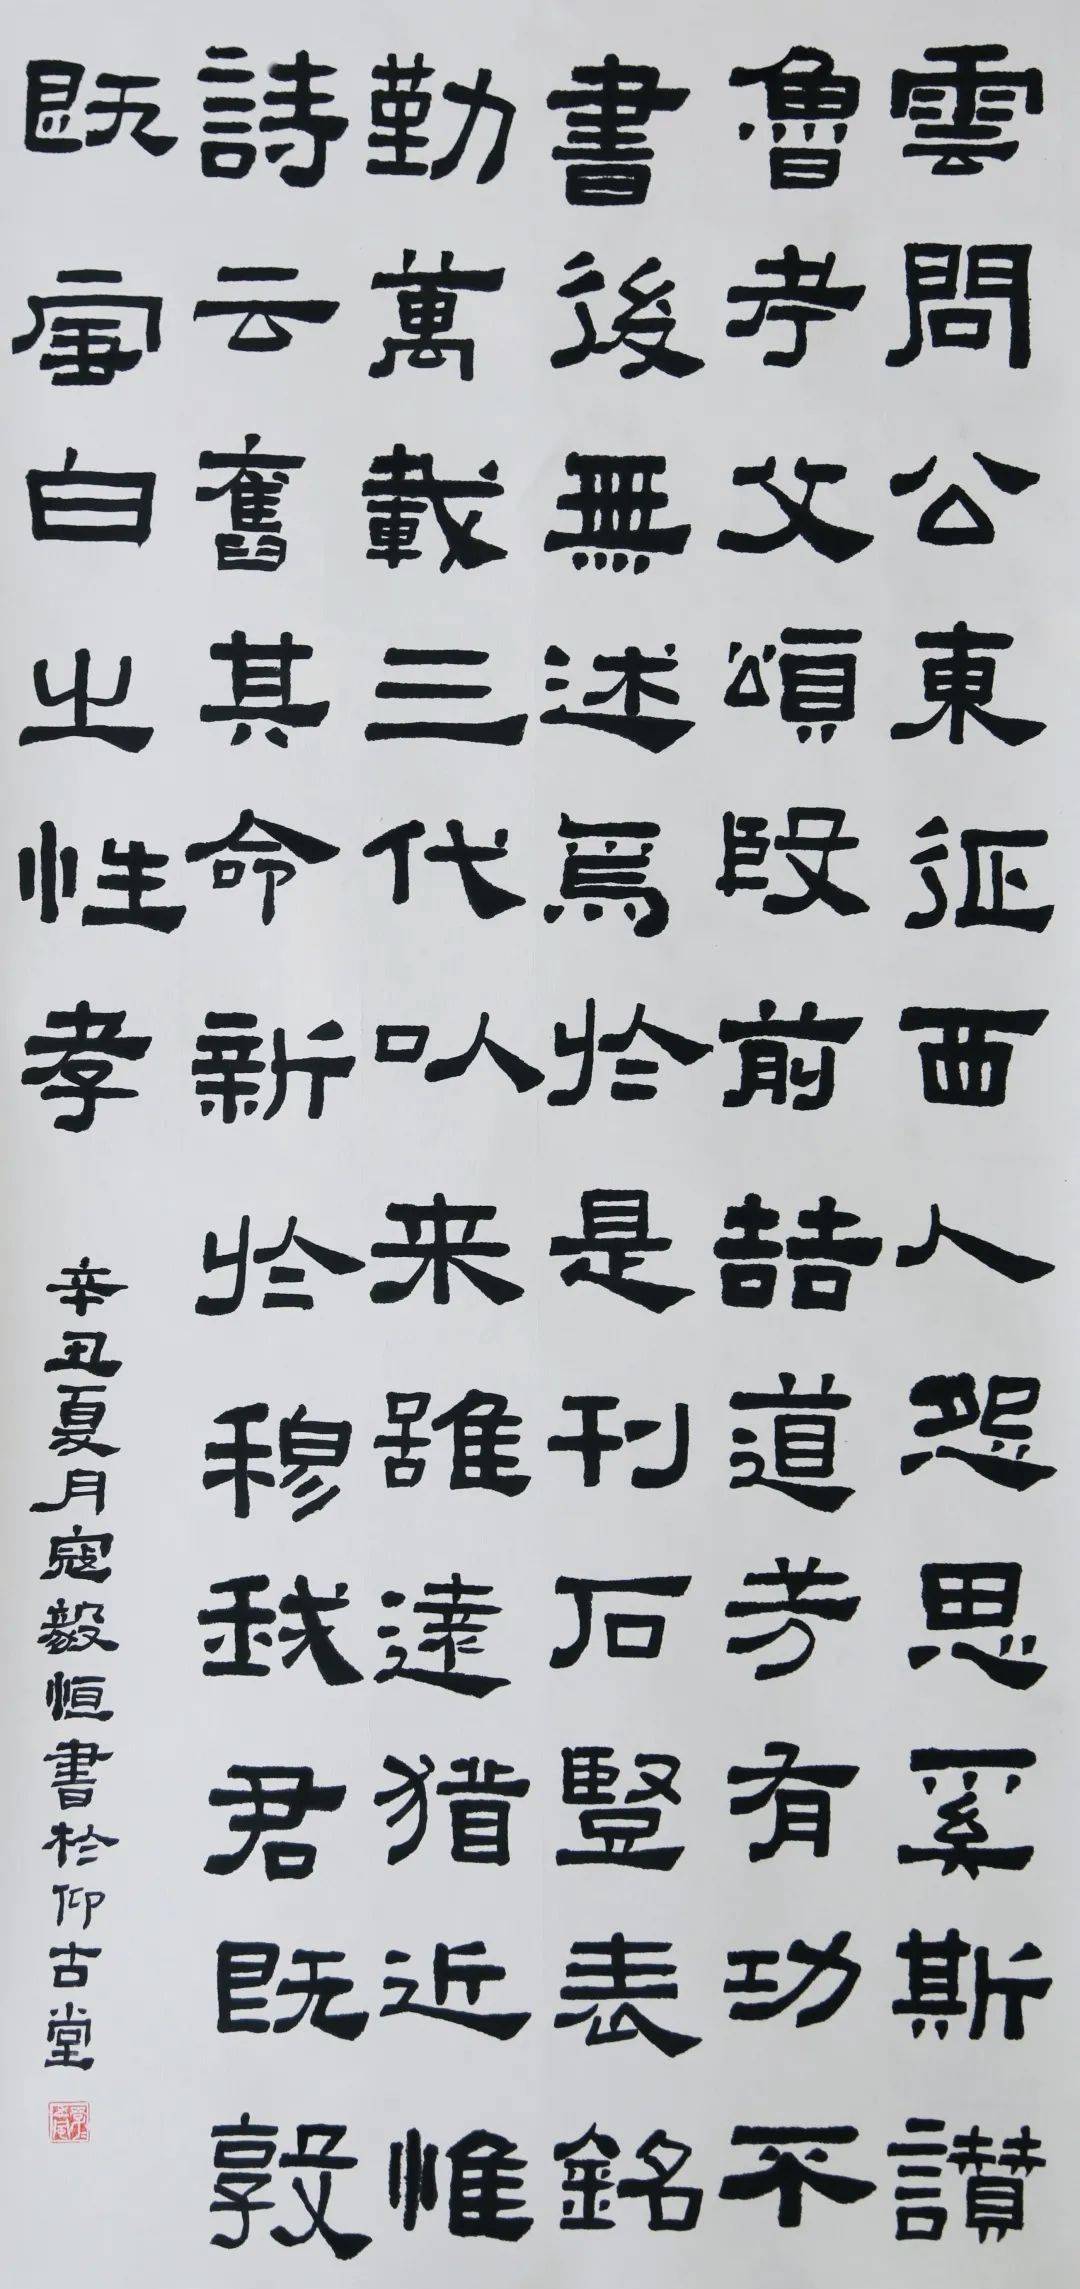 雲問公東征西人怨思奚斯讚
魯考父頌殷前喆道芳有功不
書後無述焉於是刊石豎表銘
勤萬載三代以来雖遠猶近惟
詩云舊其命新於穆我君既敦
既雪白之性孝
辛丑夏月寇毅恒書於仰古堂